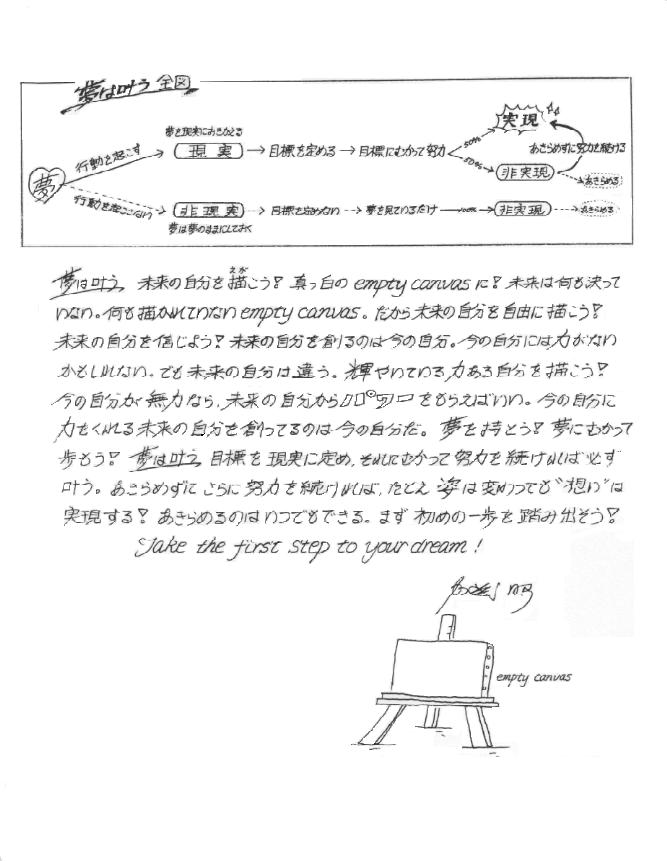 夢は叶う 全図
夢を現実におきかえる
行動を起こす
現実
目標を定める
目標にむかって努力
50%
50%
実現
あきらめずに努力を続ける
非実現
あきらめる
夢
行動を起こさない
非現実
夢は夢のままにしておく
目標を定めない
夢を見ているだけ
100%
非実現
あきらめる
えが
夢は叶う 未来の自分を描こう! 真っ白の empty canvas に! 未来は何も決って
いない。何も描かれていない empty canvas。だから未来の自分を自由に描こう!
未来の自分を信じよう! 未来の自分を創るのは今の自分。今の自分には力がない
かもしれない。でも未来の自分は違う。輝やいている力ある自分を描こう!
今の自分が無力なら、未来の自分からパワーをもらえばいい。今の自分に
力をくれる未来の自分を創ってるのは今の自分だ。夢を持とう! 夢にむかって
歩もう! 夢は叶う 目標を現実に定め、それにむかって努力を続ければ必ず
叶う。あきらめずにさらに努力を続ければ、たとえ姿は変わっても"想い"は
実現する! あきらめるのはいつでもできる。まず初めの一歩を踏み出そう!
Take the first step to your dream!
empty canvas